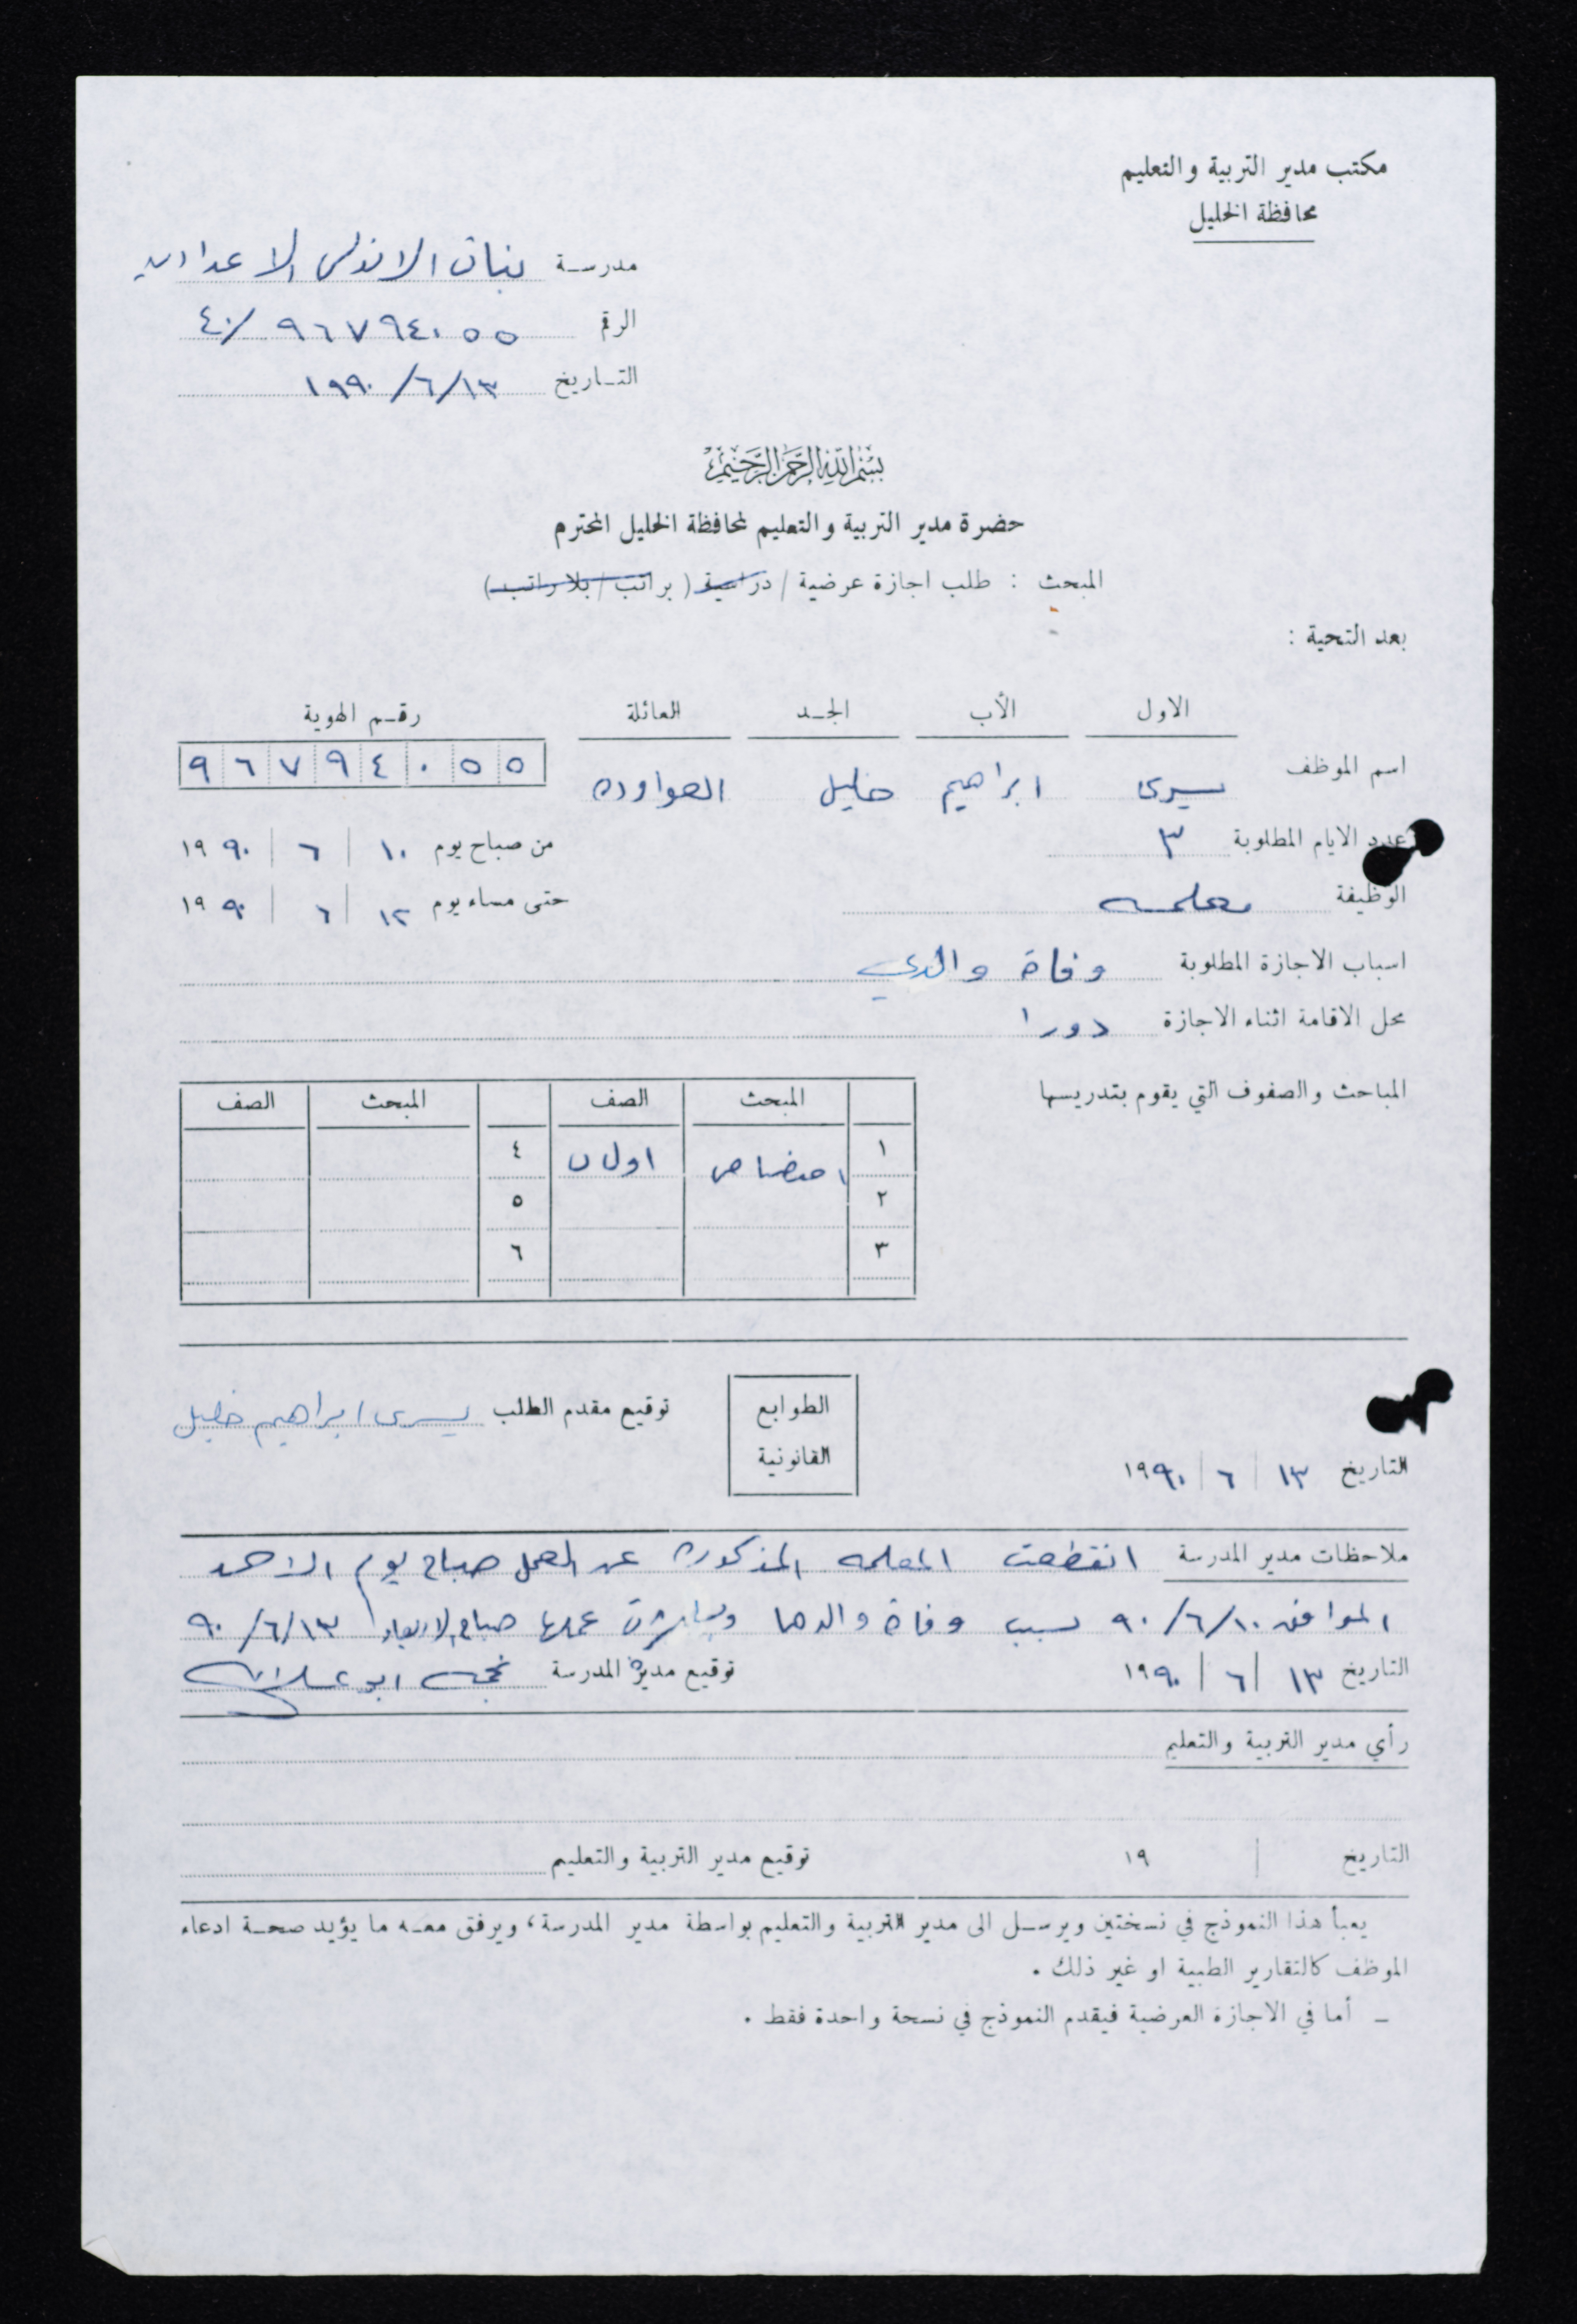 مكتب مدير التربية والتعليم
محافظة الخليل
مدرسة بنات الاندلس الاعدادية
الرقم ٩٦٧٩٤٠٥٥ /٤٠
التاريخ ١٣/٦/١٩٩٠
بسم الله الرحمن الرحيم
حضرة مدير التربية والتعليم لمحافظة الخليل المحترم
المبحث : طلب اجازة عرضية / دراسية ( براتب / بلا راتب )
بعد التحية :
الاول الأب الجد العائلة رقم الهوية
اسم الموظف يسرى ابراهيم خليل العواوده ٩٦٧٩٤٠٥٥
عدد الايام المطلوبة ٣ من صباح يوم ١٠ / ٦ / ١٩٩٠
الوظيفة معلمه حتى مساء يوم ١٢ / ٦ / ١٩٩٠
اسباب الاجازة المطلوبة وفاة والدي
محل الاقامة اثناء الاجازة دورا
المباحث والصفوف التي يقوم بتدريسها
المبحث الصف المبحث الصف
١ اول ٤
٢ ٥
٣ ٦
الطوابع القانونية
توقيع مقدم الطلب يسرى ابراهيم خليل
التاريخ ١٣ / ٦ / ١٩٩٠
ملاحظات مدير المدرسة انقطعت المعلمه المذكوره عن العمل صباح يوم الاحد
الموافق ١٠/٦/٩٠ بسبب وفاة والدها وباشرت عملها صباح الاربعاء ١٣/٦/٩٠
التاريخ ١٣ / ٦ / ١٩٩٠ توقيع مديرة المدرسة نجمه ابو
رأي مدير التربية والتعليم
التاريخ / ١٩ توقيع مدير التربية والتعليم
يعبأ هذا النموذج في نسختين ويرسل الى مدير التربية والتعليم بواسطة مدير المدرسة، ويرفق معه ما يؤيد صحة ادعاء
الموظف كالتقارير الطبية او غير ذلك .
– أما في الاجازة العرضية فيقدم النموذج في نسحة واحدة فقط .